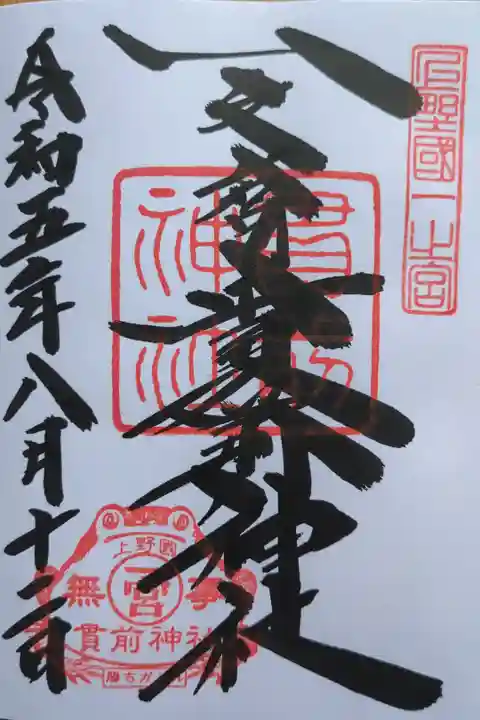 上野國一之宮
一之宮貫前神社
貫前神社
令和五年八月十二日
上野國
一宮
無事
貫前神社
勝ちガ